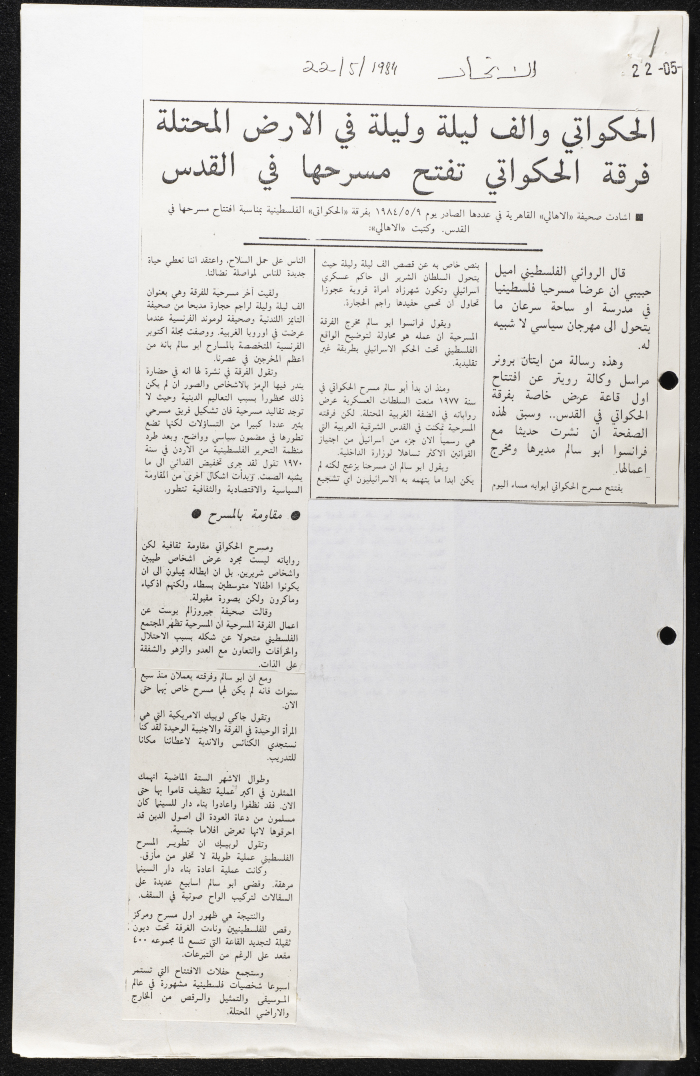 22/5/1984
الاتحاد
22-05-
الحكواتي والف ليلة وليلة في الارض المحتلة
فرقة الحكواتي تفتح مسرحها في القدس
■ اشادت صحيفة «الاهالي» القاهرية في عددها الصادر يوم ١٩٨٤/٥/٩ بفرقة «الحكواتي» الفلسطينية بمناسبة افتتاح مسرحها في
القدس. وكتبت «الاهالي»:
قال الروائي الفلسطيني اميل
حبيبي ان عرضا مسرحيا فلسطينيا
في مدرسة او ساحة سرعان ما
يتحول الى مهرجان سياسي لا شبيه
له.
وهذه رسالة من ايتان برونر
مراسل وكالة رويتر عن افتتاح
اول قاعة عرض خاصة بفرقة
الحكواتي في القدس.. وسبق لهذه
الصفحة ان نشرت حديثا مع
فرانسوا ابو سالم مديرها ومخرج
اعمالها.
يفتتح مسرح الحكواتي ابوابه مساء اليوم
بنص خاص به عن قصص الف ليلة وليلة حيث
يتحول السلطان الشرير الى حاكم عسكري
اسرائيلي وتكون شهرزاد امرأة قروية عجوزا
تحاول ان تحمي حفيدها راجم الحجارة.
ويقول فرانسوا ابو سالم مخرج الفرقة
المسرحية ان عمله هو محاولة لتوضيح الواقع
الفلسطيني تحت الحكم الاسرائيلي بطريقة غير
تقليدية.
ومنذ ان بدأ أبو سالم مسرح الحكواتي في
سنة ١٩٧٧ منعت السلطات العسكرية عرض
رواياته في الضفة الغربية المحتلة. لكن فرقته
المسرحية تمكنت في القدس الشرقية العربية التي
هي رسمياً الان جزء من اسرائيل من اجتياز
القوانين الاكثر تساهلا لوزارة الداخلية.
ويقول ابو سالم ان مسرحنا يزعج لكنه لم
يكن ابدا ما يتهمه به الاسرائيليون اي تشجيع
الناس على حمل السلاح، واعتقد اننا نعطي حياة
جديدة للناس لمواصلة نضالنا.
ولقيت آخر مسرحية للفرقة وهي بعنوان
الف ليلة وليلة لراجم حجارة مديحا من صحيفة
التايمز اللندنية وصحيفة لوموند الفرنسية عندما
عرضت في اوروبا الغربية. ووصفت مجلة اكتوبر
الفرنسية المتخصصة بالمسارح ابو سالم بانه من
اعظم المخرجين في عصرنا.
وتقول الفرقة في نشرة لها انه في حضارة
يندر فيها الرمز بالاشخاص والصور ان لم يكن
ذلك محظوراً بسبب التعاليم الدينية وحيث لا
توجد تقاليد مسرحية فان تشكيل فريق مسرحي
يثير عددا كبيرا من التساؤلات لكنها تضع
تطورها في مضمون سياسي وواضح. وبعد طرد
منظمة التحرير الفلسطينية من الاردن في سنة
١٩٧٠ تقول لقد جرى تخفيض الفدائي الى ما
يشبه الصمت. وبدأت اشكال اخرى من المقاومة
السياسية والاقتصادية والثقافية تتطور.
● مقاومة بالمسرح ●
ومسرح الحكواتي مقاومة ثقافية لكن
رواياته ليست مجرد عرض اشخاص طيبين
واشخاص شريرين. بل ان ابطاله يميلون الى ان
يكونوا اطفالا متوسطين بسطاء ولكنهم اذكياء
وماكرون ولكن بصورة مقبولة.
وقالت صحيفة جيروزالم بوست عن
اعمال الفرقة المسرحية ان المسرحية تظهر المجتمع
الفلسطيني متحولا عن شكله بسبب الاحتلال
والخرافات والتعاون مع العدو والزهو والشفقة
على الذات.
ومع ان ابو سالم وفرقته يعملان منذ سبع
سنوات فانه لم يكن لهما مسرح خاص بهما حتى
الان.
وتقول جاكي لوبيك الامريكية التي هي
المرأة الوحيدة في الفرقة والاجنبية الوحيدة لقد كنا
نستجدي الكنائس والاندية لاعطائنا مكانا
للتدريب.
وطوال الاشهر الستة الماضية انهمك
الممثلون في اكبر عملية تنظيف قاموا بها حتى
الان. فقد نظفوا واعادوا بناء دار للسينما كان
مسلمون من دعاة العودة الى اصول الدين قد
احرقوها لانها تعرض افلاما جنسية.
وتقول لوبيك ان تطوير المسرح
الفلسطيني عملية طويلة لا تخلو من مآزق.
وكانت عملية اعادة بناء دار السينما
مرهقة. وقضى ابو سالم اسابيع عديدة على
السقالات لتركيب الواح صوتية في السقف.
والنتيجة هي ظهور اول مسرح ومركز
رقص للفلسطينيين وناءت الفرقة تحت ديون
ثقيلة لتجديد القاعة التي تتسع لما مجموعه ٤٠٠
مقعد على الرغم من التبرعات.
وستجمع حفلات الافتتاح التي تستمر
اسبوعا شخصيات فلسطينية مشهورة في عالم
الموسيقى والتمثيل والرقص من الخارج
والاراضي المحتلة.